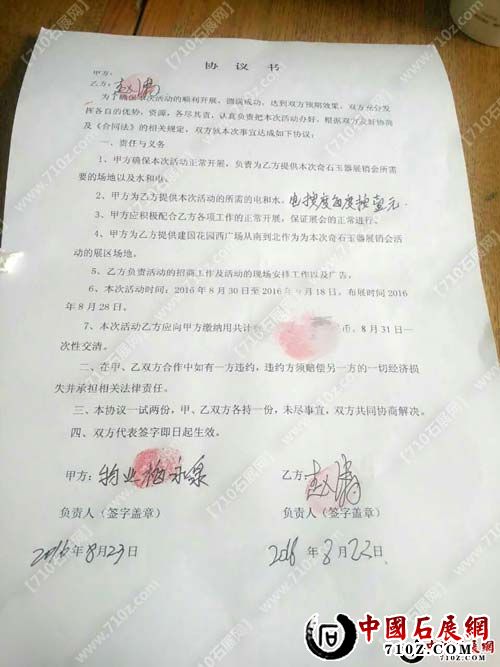 协 议 书
甲方：
乙方：赵涛
为了确保本次活动的顺利开展，圆满成功，达到双方预期效果，双方充分发
挥各自的优势，资源，各尽其责，认真负责把本次活动办好，根据双方友好协商
及《合同法》的相关规定，双方就本次事宜达成如下协议：
一、责任与义务
1、甲方确保本次活动正常开展，负责为乙方提供本次奇石玉器展销会所需
要的场地以及水和电。
2、甲方为乙方提供本次活动的所需的电和水。电按度每度按壹元
3、甲方应积极配合乙方各项工作的正常开展，保证展会的正常进行。
4、甲方为乙方提供建国花园西广场从南到北作为为本次奇石玉器展销会活
动的展区场地。
5、乙方负责活动的招商工作及活动的现场安排工作以及广告。
6、本次活动时间：2016 年 8 月 30 日至 2016 年 月 18 日，布展时间 2016
年 8 月 28 日。
7、本次活动乙方应向甲方缴纳用共计 币，8 月 31 日一
次性交清。
二、在甲、乙双方合作中如有一方违约，违约方须赔偿另一方的一切经济损
失并承担相关法律责任。
三、本协议一试两份，甲、乙双方各持一份，未尽事宜，双方共同协商解决。
四、双方代表签字即日起生效。
甲方：物业 永泉 乙方：赵涛
负责人（签字盖章） 负责人（签字盖章）
2016年8月23日 2016 年 8 月 22日
中國石展網
710Z.COM